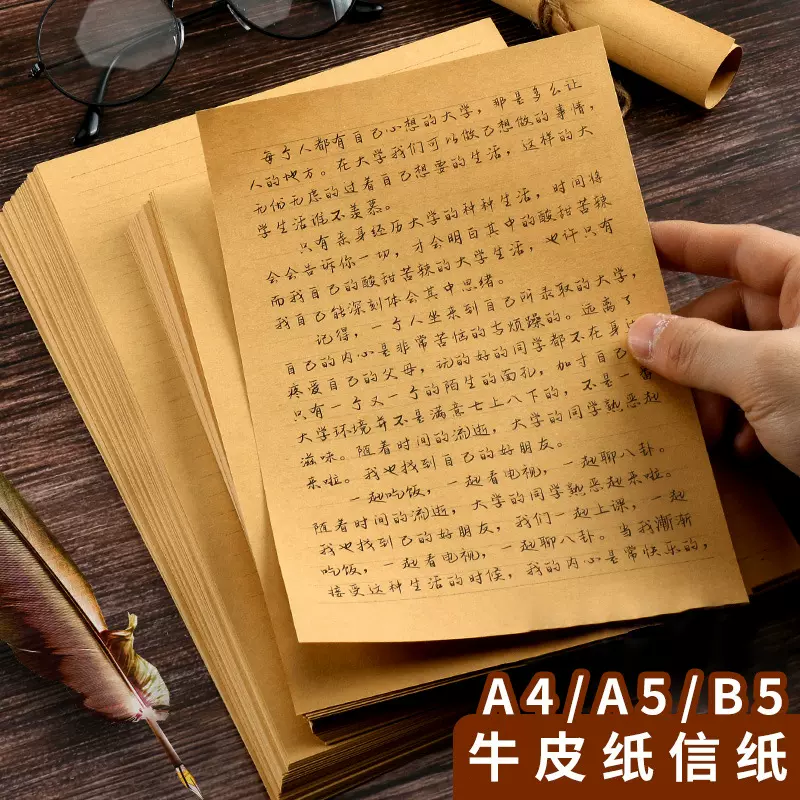 每个人都有自己心想的大学，那是多么让
人的地方。在大学我们可以做己想做的事情，
无忧无虑的过着自己想要的生活，这样的大
学生活谁不羡慕。
只有亲身经历大学的种种生活，时间将
会会告诉你一切，才会明白其中的酸甜苦辣
而我自己的酸甜苦辣的大学生活，也许只有
我自己能深刻体会其中思绪。
记得，一个人坐来到自己所录取的大学，
自己的内心是非常苦恼的古烦躁的。远离了
疼爱自己的父母，玩的好的同学都不在身边
只有一个又一个的陌生的面孔，加寸自己
大学环境并不是满意七上八下的，不是一番
滋味。随着时间的流逝，大学的同学熟悉起
来啦。我也找到自己的好朋友。
一起吃饭，一起看电视，一起聊八卦。
随着时间的流逝，大学的同学熟悉起来啦。
我也找到己的好朋友，我们一起上课，一起
吃饭，一起看电视，一起聊八卦。当我渐渐
接受这种生活的时候，我的内心是常快乐的，
A4/A5/B5
牛皮纸信纸